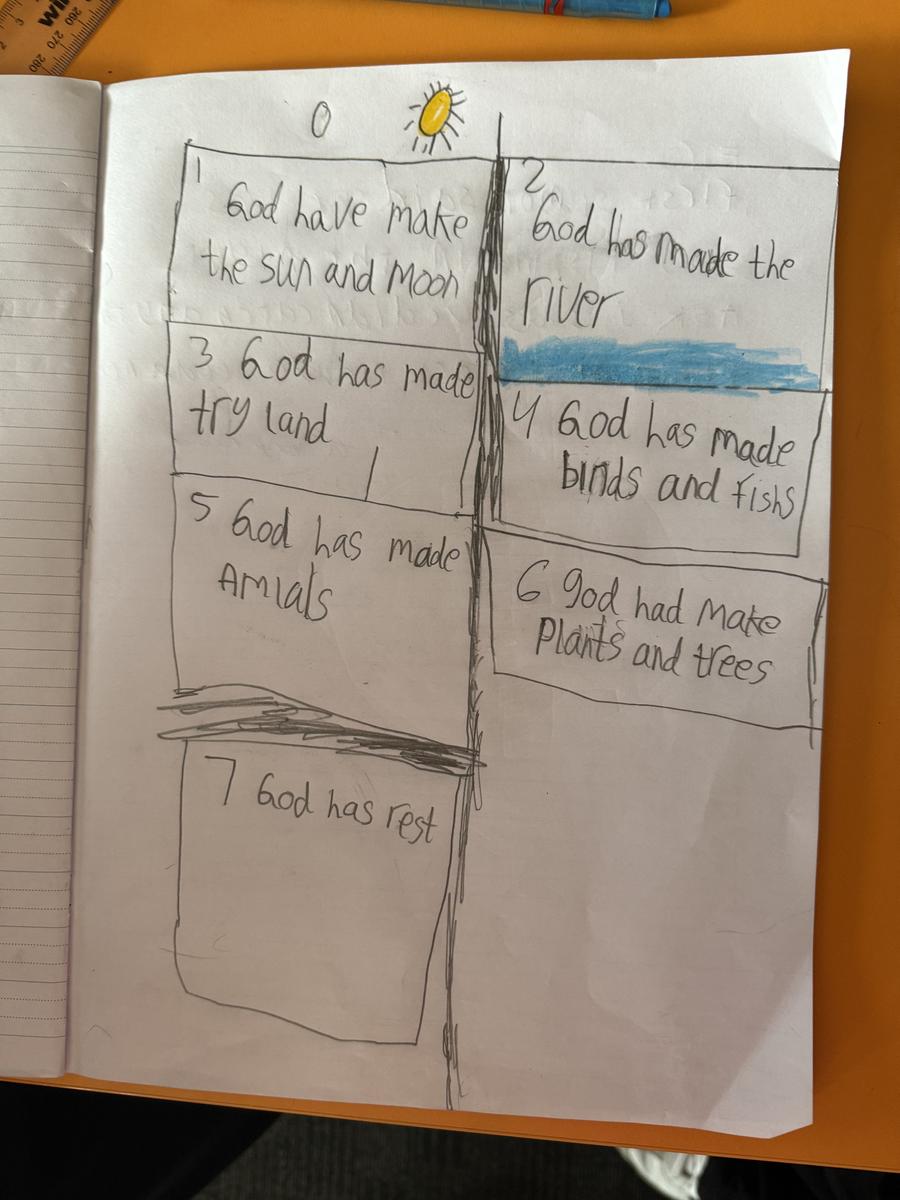 1
God have make
the sun and Moon
2
God has made the
river
3 God has made
try land
4 God has made
binds and fishs
5 God has made
Amials
6 god had make
Plants and trees
7 God has rest
260
270
280